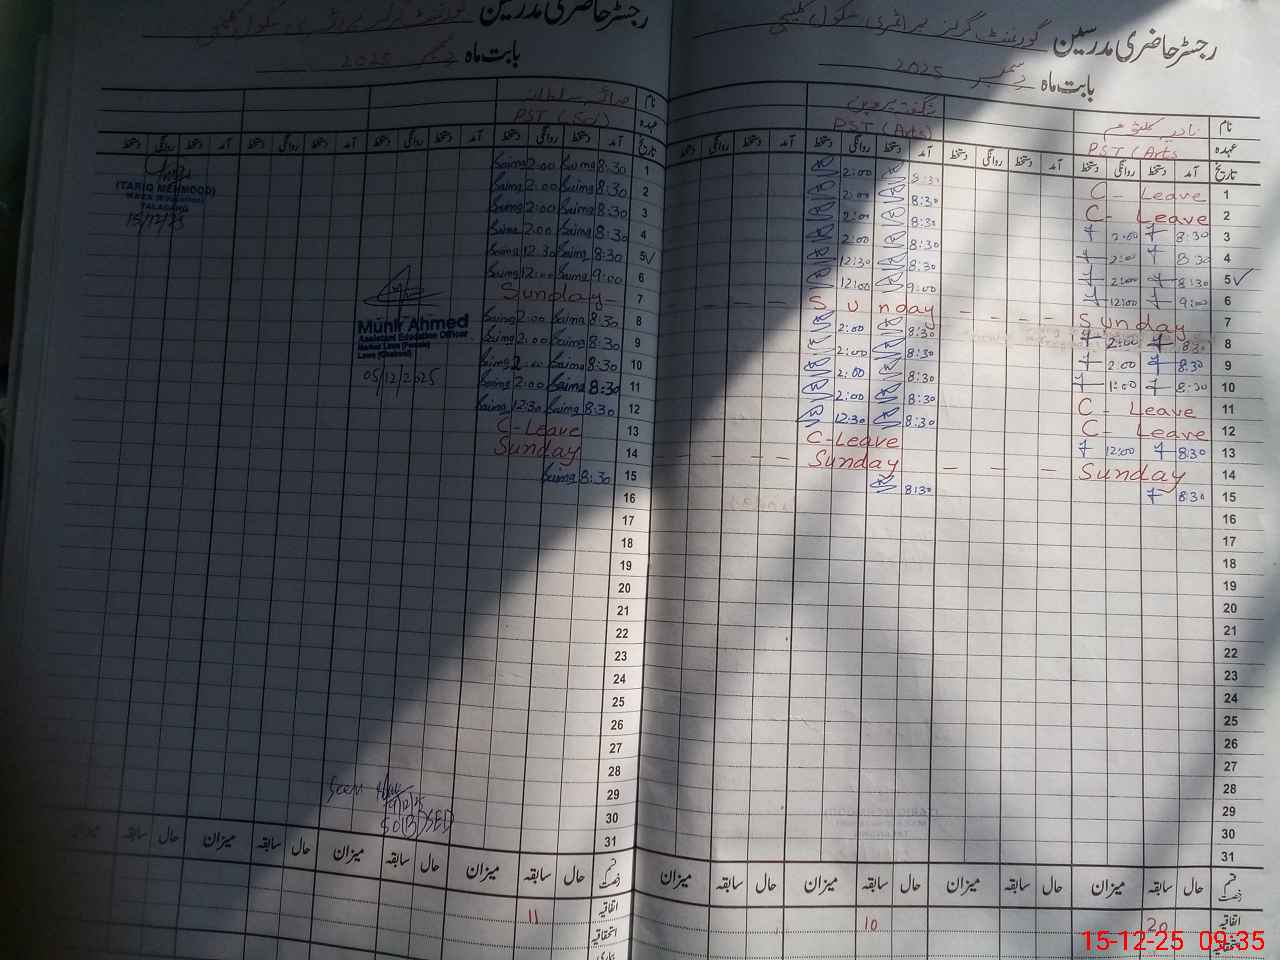 رجسٹر حاضری مدرسین گورنمنٹ گرلز پرائمری سکول
بابت ماہ دسمبر 2025
نام
عہدہ PST (Arts PST (Arts)
تاریخ آمد دستخط روانگی دستخط آمد دستخط روانگی دستخط آمد دستخط روانگی دستخط
1 C - Leave 8:30 2:00
2 C - Leave 8:30 2:00
3 8:30 2:00 8:30 2:00
4 8:30 2:00 8:30 2:00
5✓ 8:30 2:00 8:30 12:30
6 9:00 12:00 9:00 12:00
7 Sunday - - - - Sunday - - - -
8 8:30 2:00 8:30 2:00
9 8:30 2:00 8:30 2:00
10 8:30 1:00 8:30 2:00
11 C - Leave 8:30 2:00
12 C - Leave 8:30 12:30
13 8:30 12:00 C-Leave
14 Sunday - - - Sunday - - - -
15 8:30 8:30
16
17
18
19
20
21
22
23
24
25
26
27
28
29
30
31
قسم رخصت حال سابقہ میزان حال سابقہ میزان حال سابقہ میزان حال سابقہ میزان
اتفاقیہ 20 10
استحقاقیہ
15-12-25 09:35
رجسٹر حاضری مدرسین گورنمنٹ گرلز پرائمری سکول
بابت ماہ دسمبر 2025
نام صائمہ سلطانہ
عہدہ PST (Sci)
تاریخ آمد دستخط روانگی دستخط آمد دستخط روانگی دستخط آمد دستخط روانگی دستخط آمد دستخط روانگی دستخط
1 8:30 Saima 2:00 Saima
2 8:30 Saima 2:00 Saima
3 8:30 Saima 2:00 Saima
4 8:30 Saima 2:00 Saima
5✓ 8:30 Saima 12:30 Saima
6 9:00 Saima 12:00 Saima
7 Sunday
8 8:30 Saima 2:00 Saima
9 8:30 Saima 2:00 Saima
10 8:30 Saima 2:00 Saima
11 8:30 Saima 2:00 Saima
12 8:30 Saima 12:30 Saima
13 C-Leave
14 Sunday
15 8:30 Saima
16
17
18
19
20
21
22
23
24
25
26
27
28
29
30
31
(TARIQ MEHMOOD)
TALAGANG
15/12/25
Munir Ahmed
Assistant Education Officer
05/12/2025
Seen
قسم رخصت حال سابقہ میزان حال سابقہ میزان حال سابقہ میزان حال سابقہ میزان
اتفاقیہ 11
استحقاقیہ